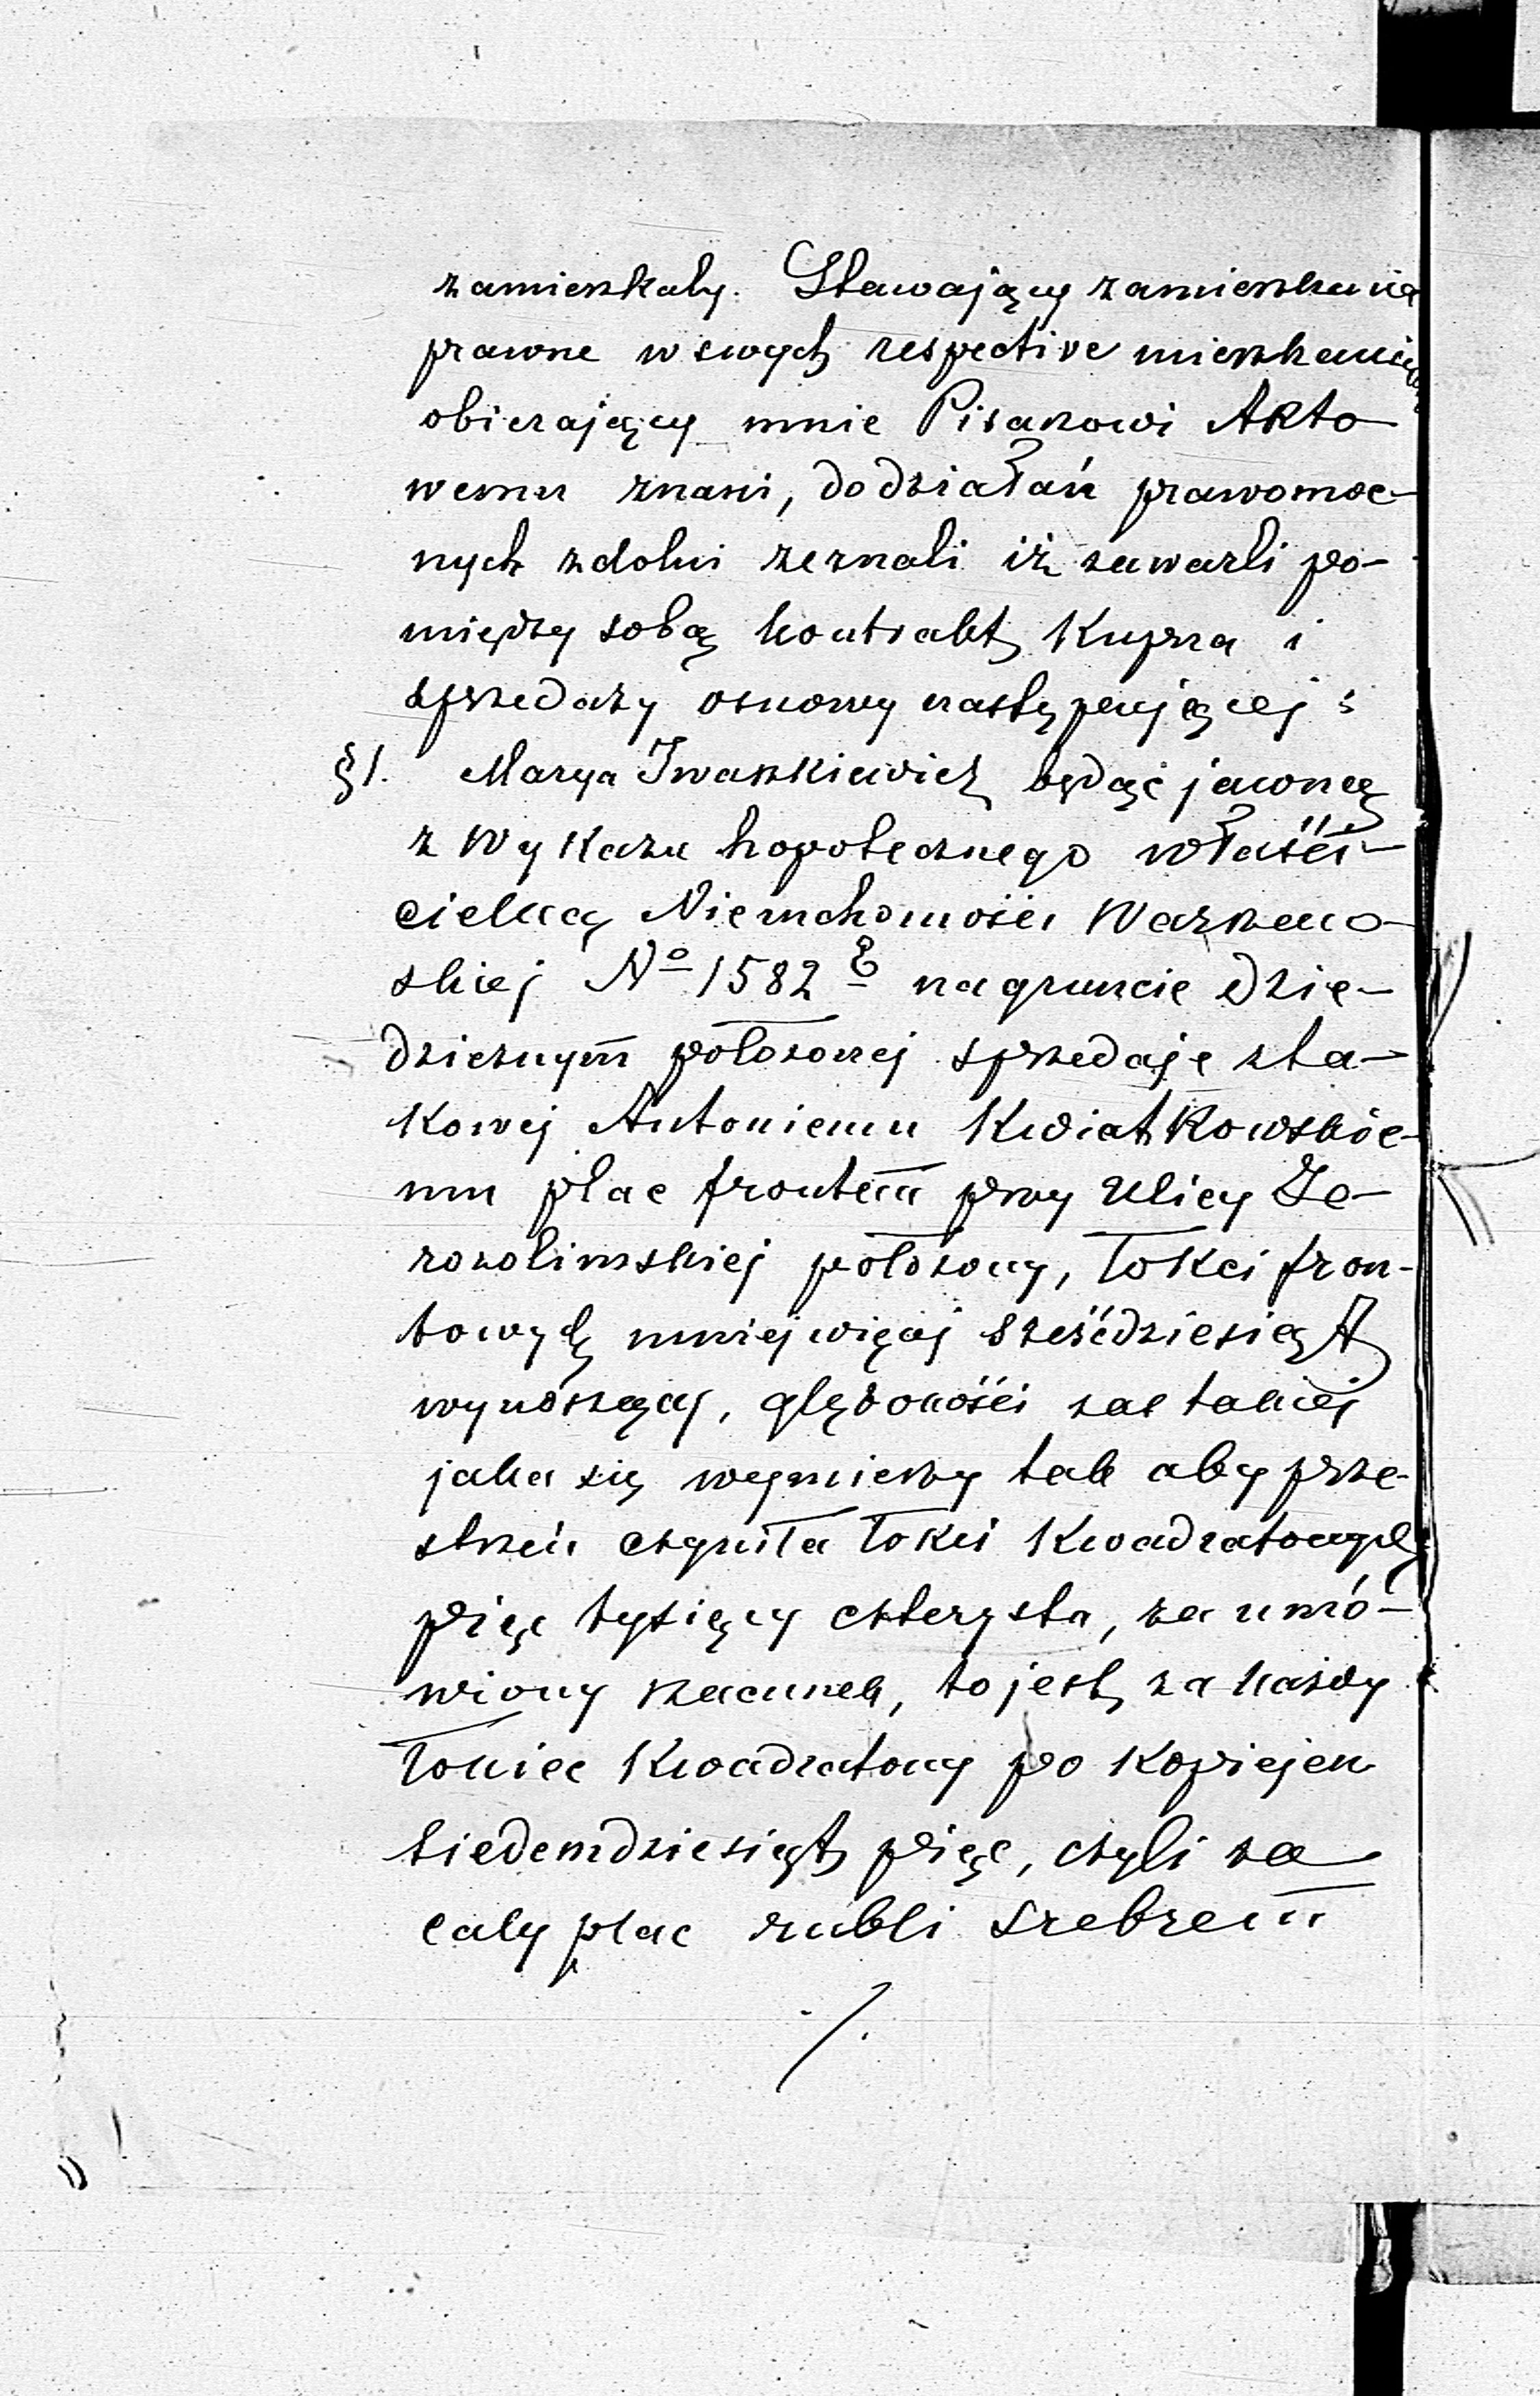 zamieszkały. Stawający zamieszkania
prawne w swych respective mieszkaniach
obierający mnie Pisarzowi Akto
wemu znani, do działań prawomoc-
nych zdolni zeznali iż zawarli po-
między sobą kontrakt Kupna i
sprzedaży osnowy następującej:
§1. Marya Iwaszkiewicz będąc jawną
z Wykazu hypotecznego właści-
cielką Nieruchomości Warszaw-
skiej No 1582 E na gruncie dzie-
dzicznym położonej sprzedaje z ta-
kowej Antoniemu Kwiatkowskie-
mu plac frontem przy Ulicy Je-
rozolimskiej położony, łokci fron-
towych mniej więcej sześćdziesiąt
wynoszący, głębokości zaś takiej
jaka się wymierzy tak aby prze-
strzeń czyniła łokci Kwadratowych
pięć tysięcy czterysta, za umó-
wiony szacunek, to jest za każdy
łokieć Kwadratowy po kopiejek
siedemdziesiąt pięć, czyli za
cały plac rubli srebrem
./.